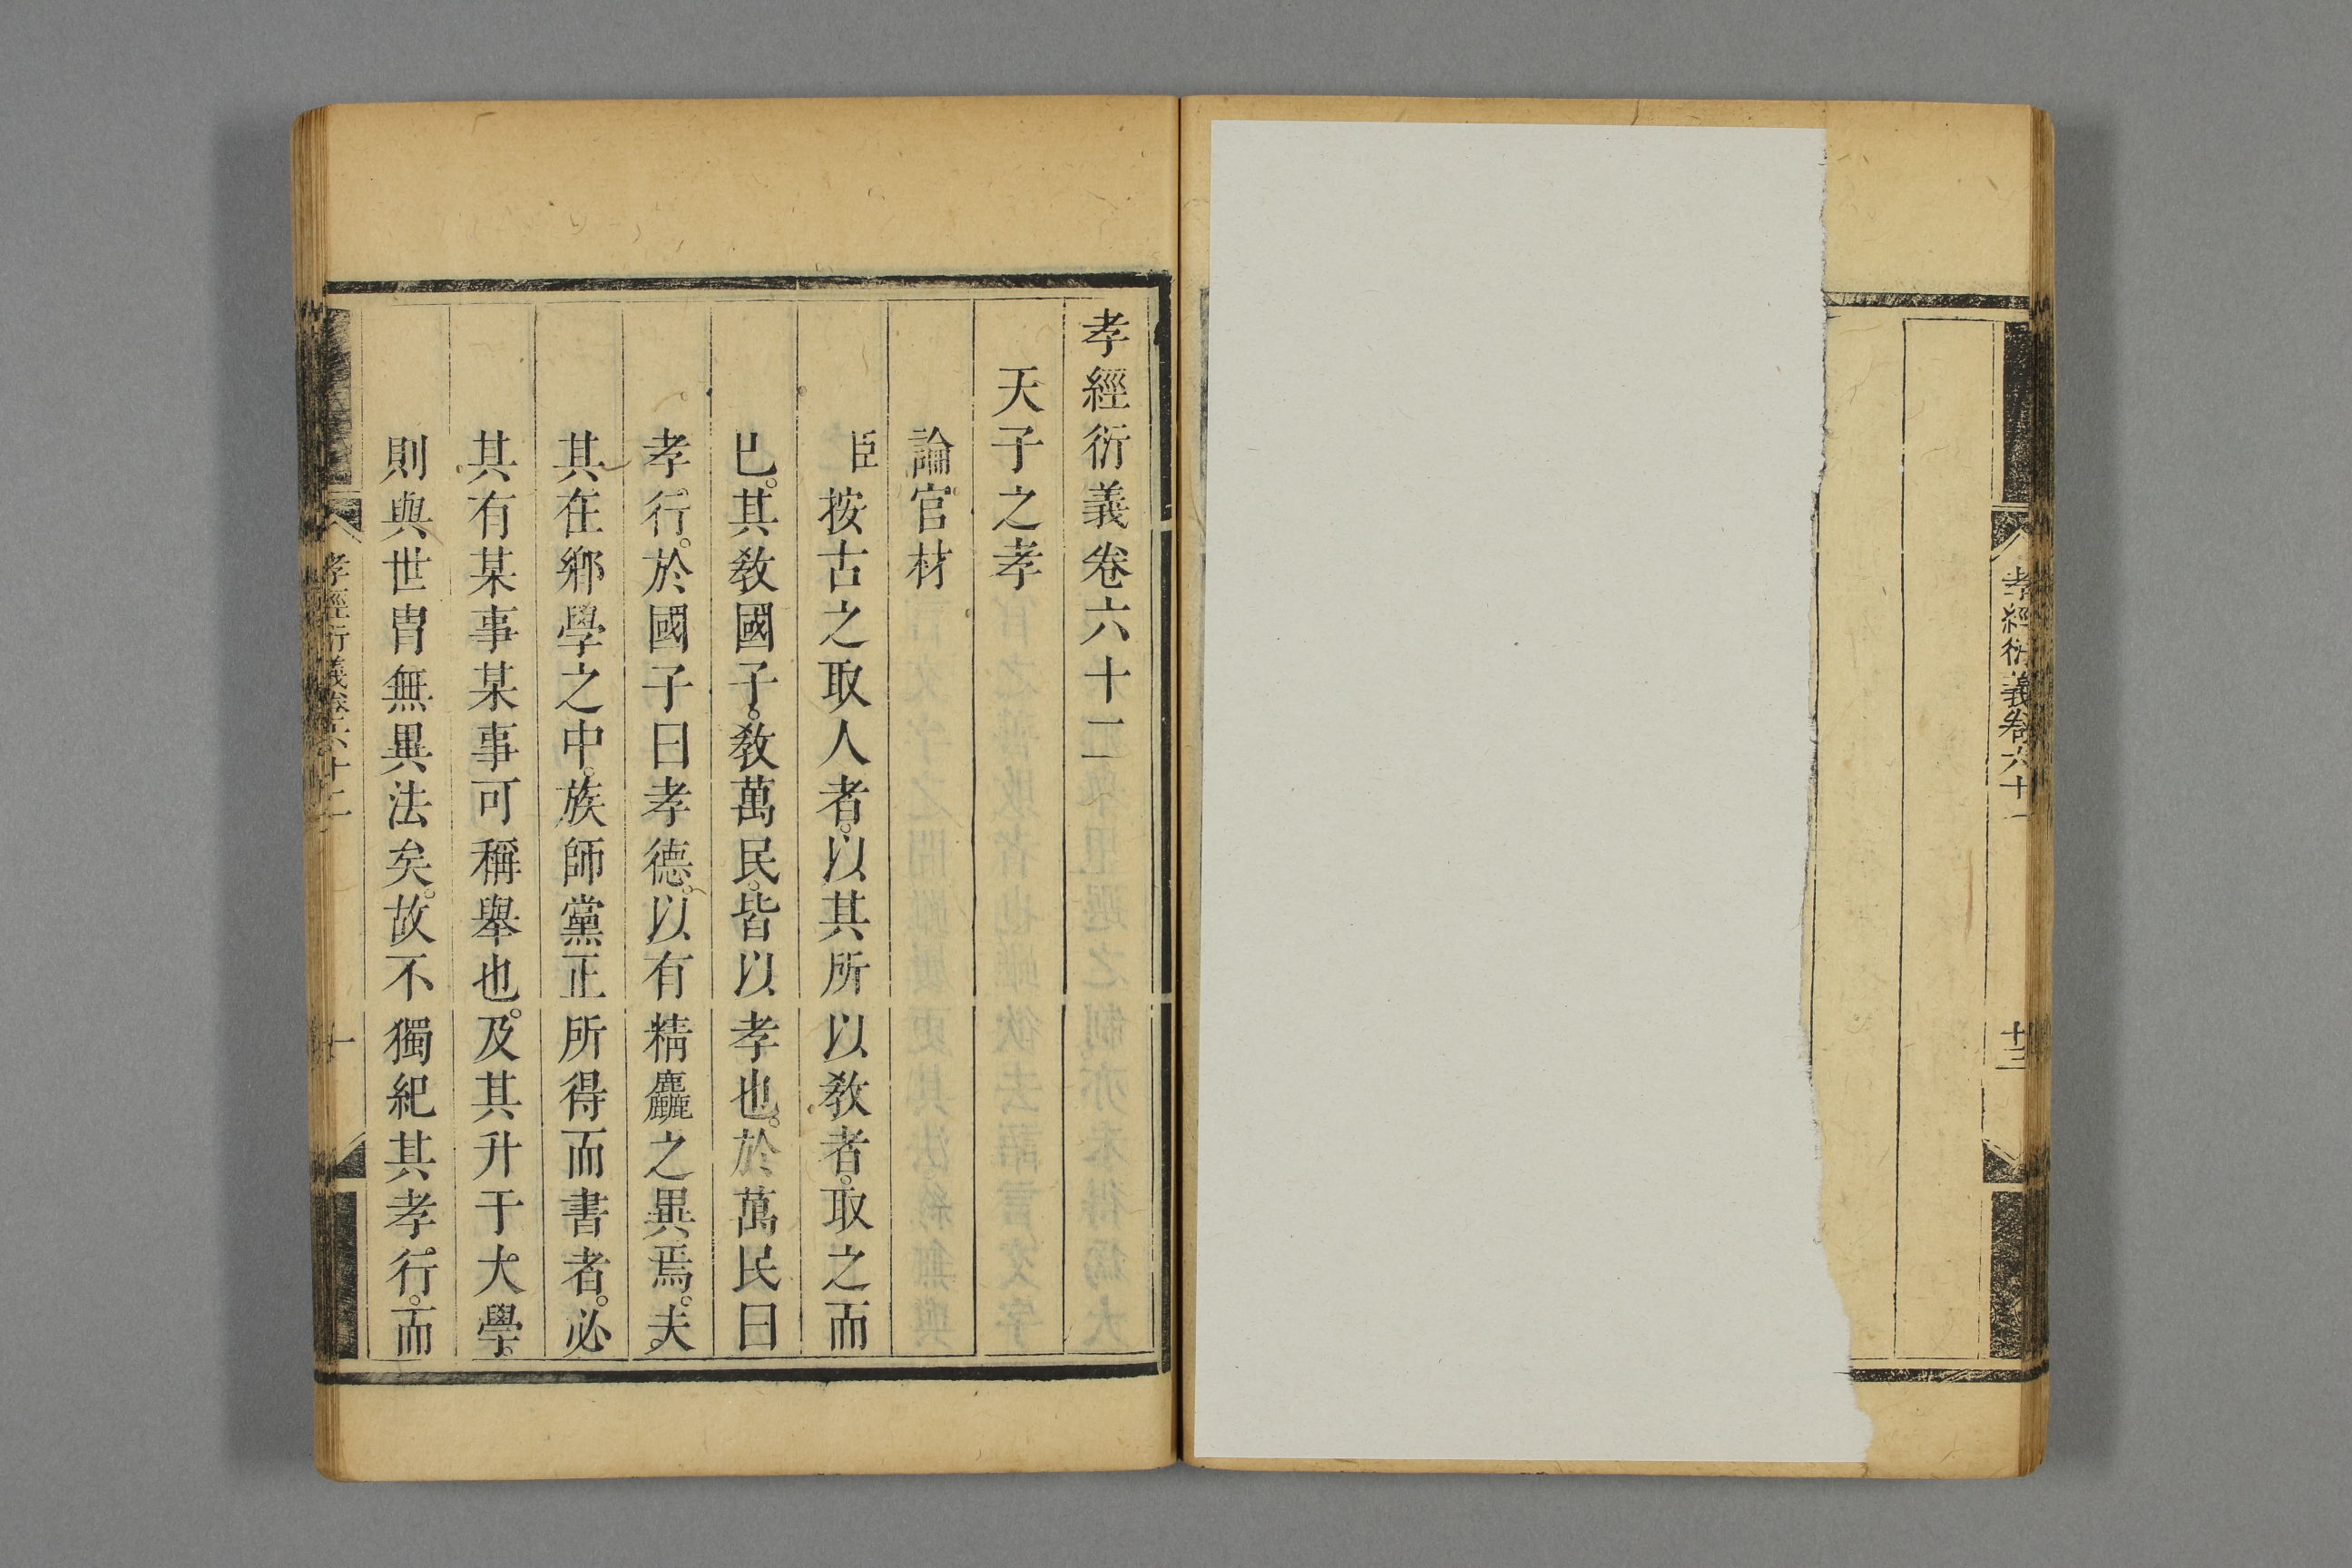 孝經衍義卷六十一
十三
孝經衍義卷六十二
天子之孝
論官材
臣按古之取人者。以其所以敎者。取之而
已。其敎國子。敎萬民。皆以孝也。於萬民曰
孝行。於國子曰孝德。以有精麤之異焉。夫
其在鄉學之中。族師黨正所得而書者。必
其有某事某事可稱舉也。及其升于大學。
則與世胄無異法矣。故不獨紀其孝行。而
孝經衍義卷六十二
一